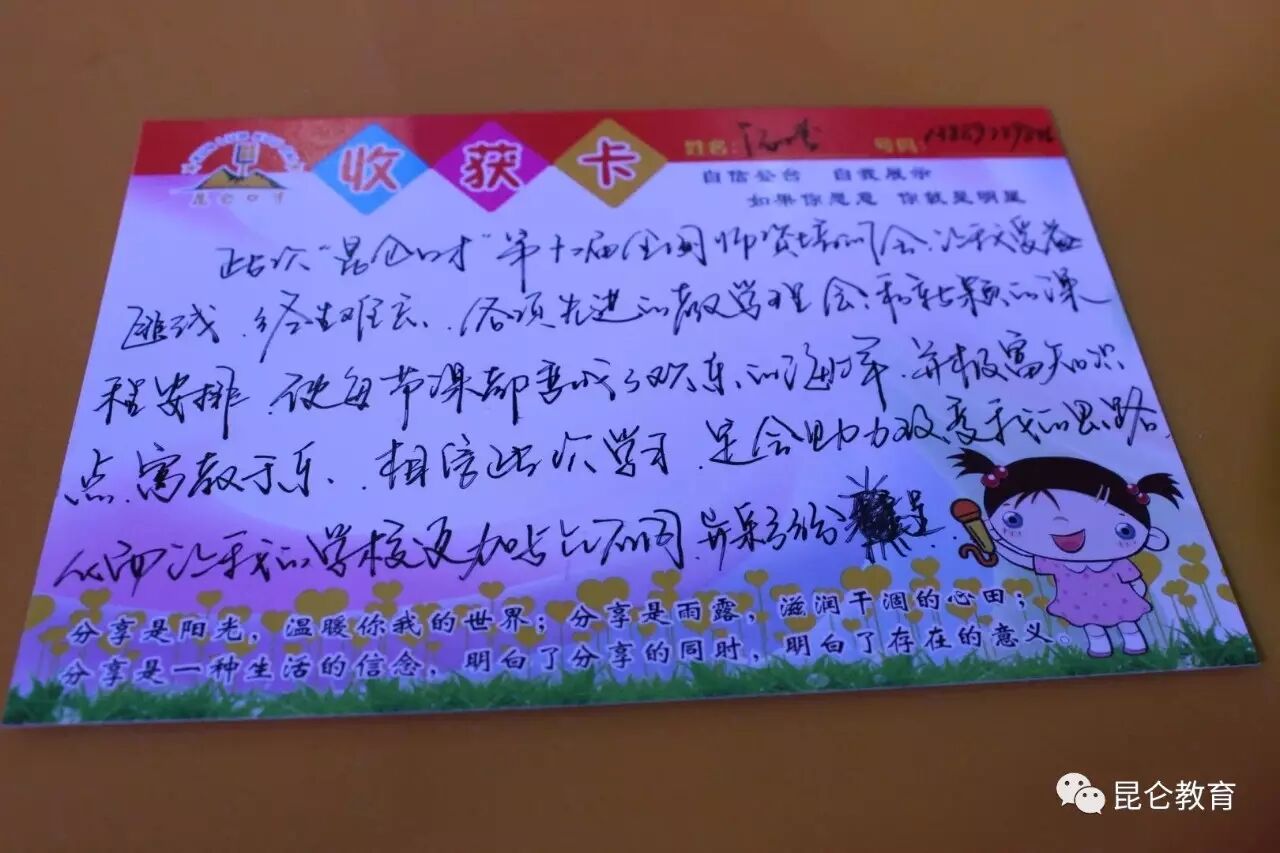 昆仑口才
收获卡
姓名：
号码：
自信公台 自我展示
如果你愿意 你就是明星
此次"昆仑口才"第十二届全国师资培训会，让我受益
匪浅，终生难忘，各项先进的教学理念，和新颖的课
程安排，使每节课都变成了欢乐的海洋，并极富知识
点，寓教于乐，相信此次学习，定会助力改变我的思路，
从而让我的学校更加与众不同，异彩纷呈
分享是阳光，温暖你我的世界；分享是雨露，滋润干涸的心田；
分享是一种生活的信念，明白了分享的同时，明白了存在的意义。
昆仑教育